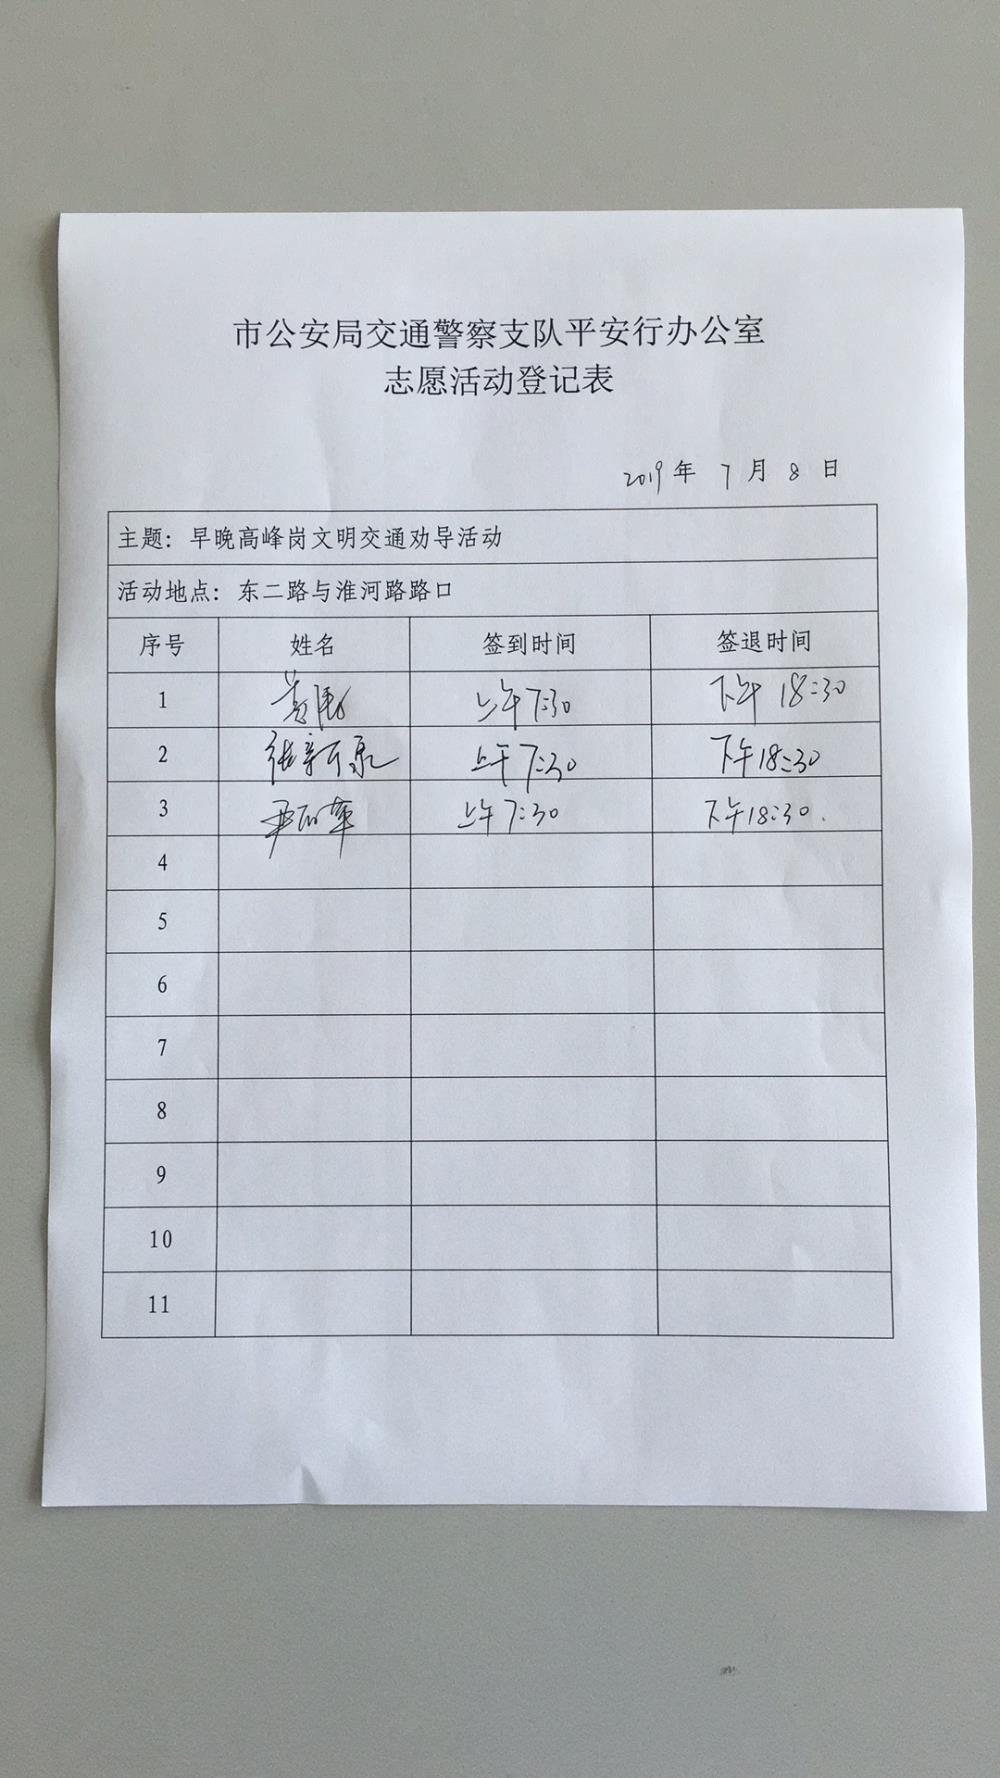 市公安局交通警察支队平安行办公室
志愿活动登记表
2019年 7月 8日
主题：早晚高峰岗文明交通劝导活动
活动地点：东二路与淮河路路口
序号 姓名 签到时间 签退时间
1 上午7:30 下午18:30
2 张新泉 上午7:30 下午18:30
3 上午7:30 下午18:30.
4
5
6
7
8
9
10
11